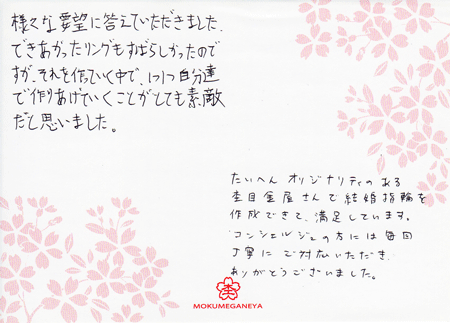 様々な要望に答えていただきました。
できあがったリングもすばらしかったので
すが、それを作っていく中で、1つ1つ自分達
で作りあげていくことがとても素敵
だと思いました。
たいへん オリジナリティのある
杢目金屋さんで結婚指輪を
作成できて、満足しています。
コンシェルジュの方には毎回
丁寧に ご対応いただき、
ありがとうございました。
杢
MOKUMEGANEYA